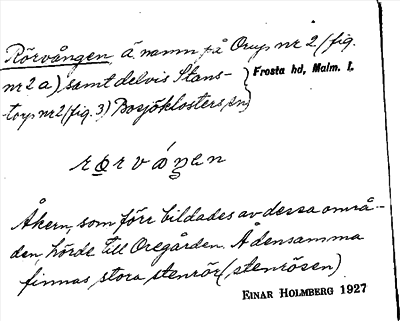 Rörvången, ä. namn på Orup nr 2 (fig.
nr 2 a) samt delvis Stans-
torp nr 2 (fig. 3) Bosjöklosters sn
Frosta hd, Malm. l.
Åkern, som förr bildades av dessa områ-
den, hörde till Oregården. Å densamma
finnas stora stenrör (stenrösen)
EINAR HOLMBERG 1927